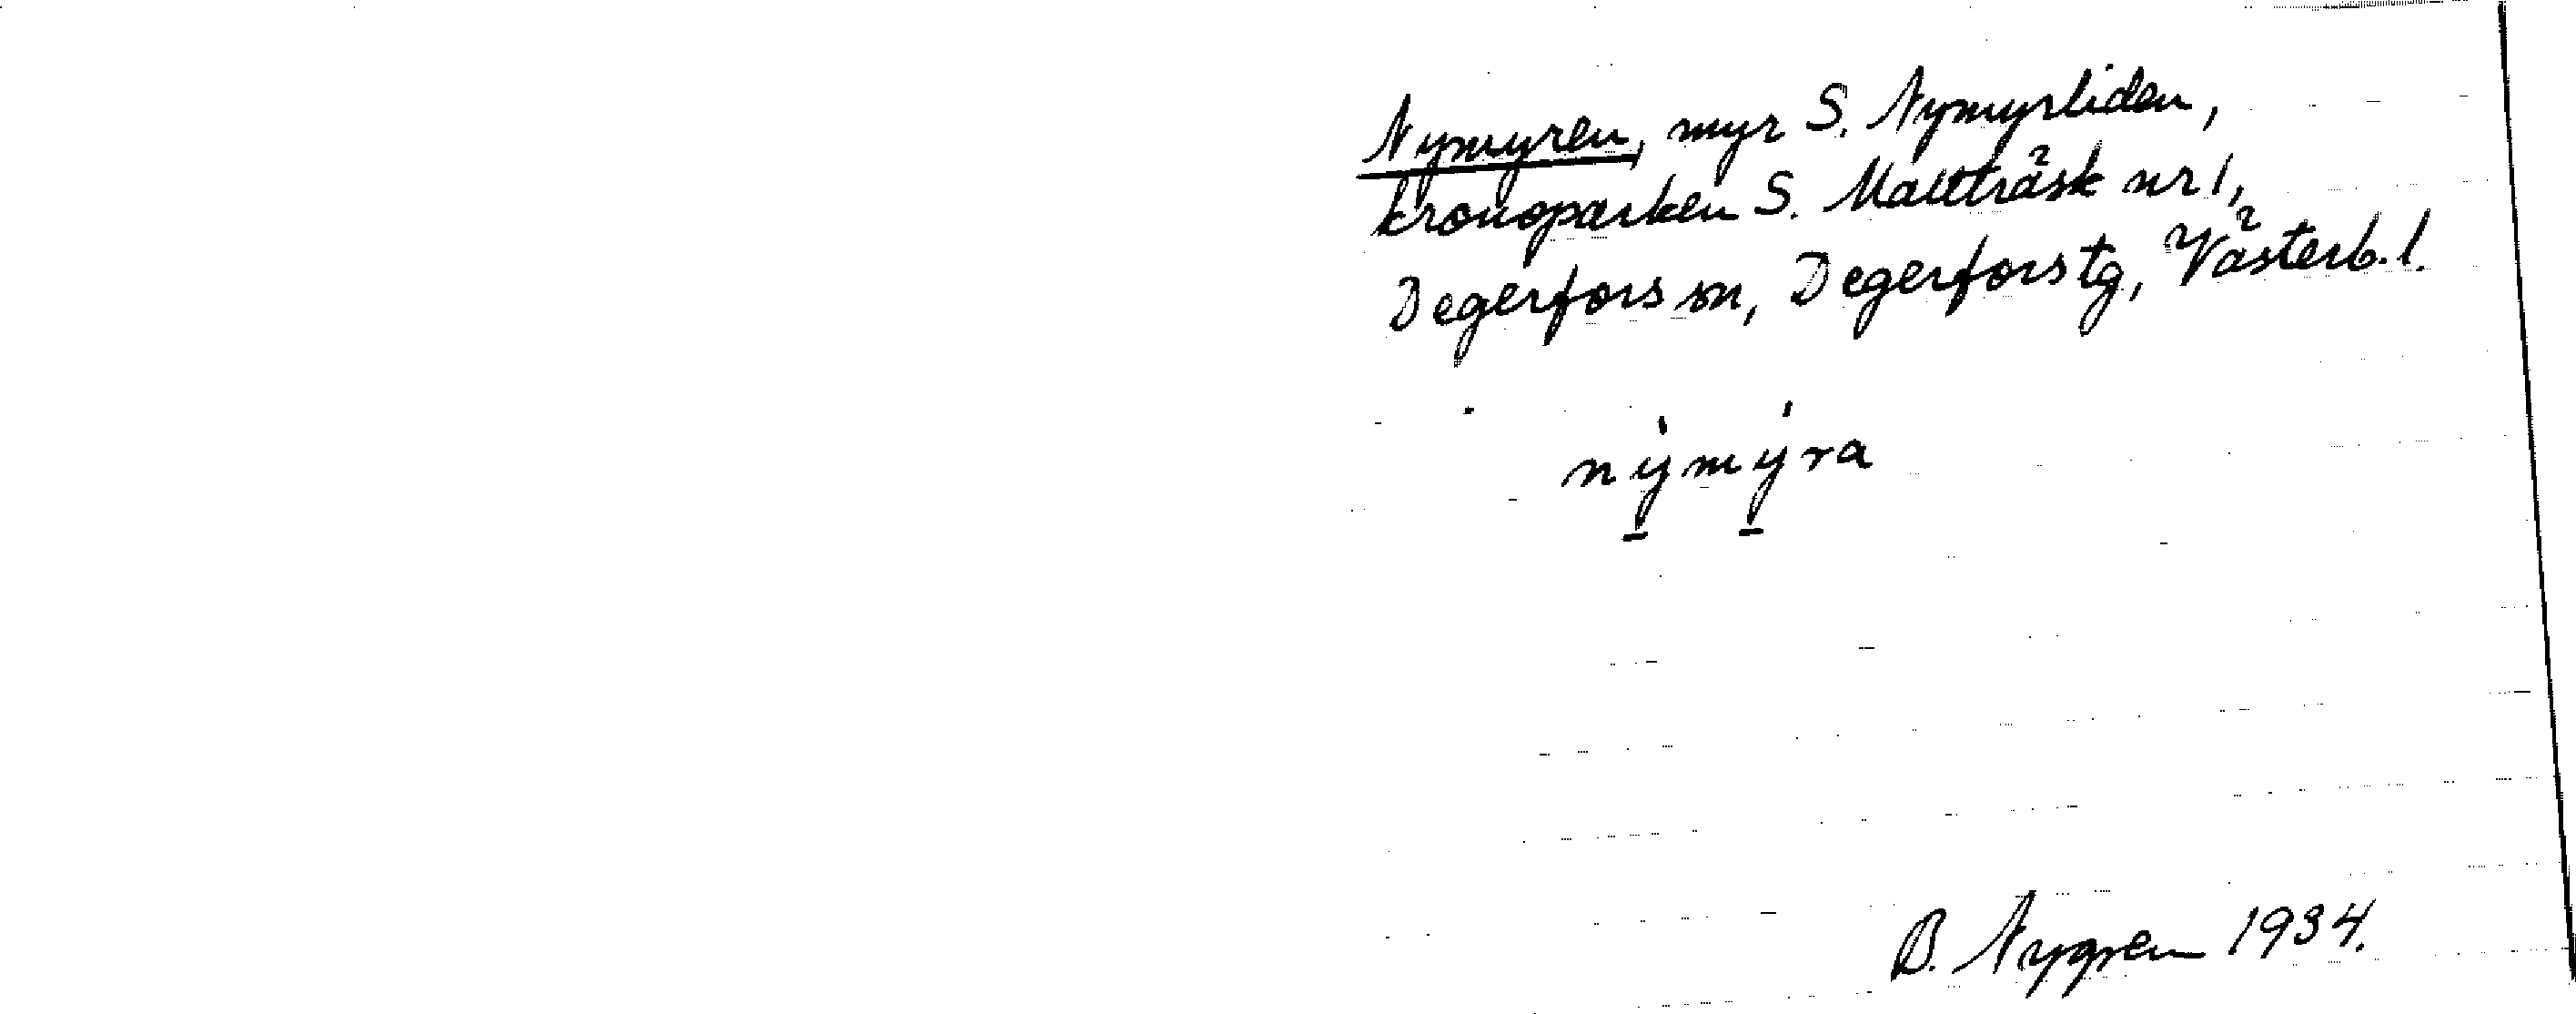 Nymyren, myr S. Nymyrliden,
kronoparken S. Maltträsk nr 1,
Degerfors sn, Degerfors tg, Västerb. l.
nymyra
B. Nygren 1934.